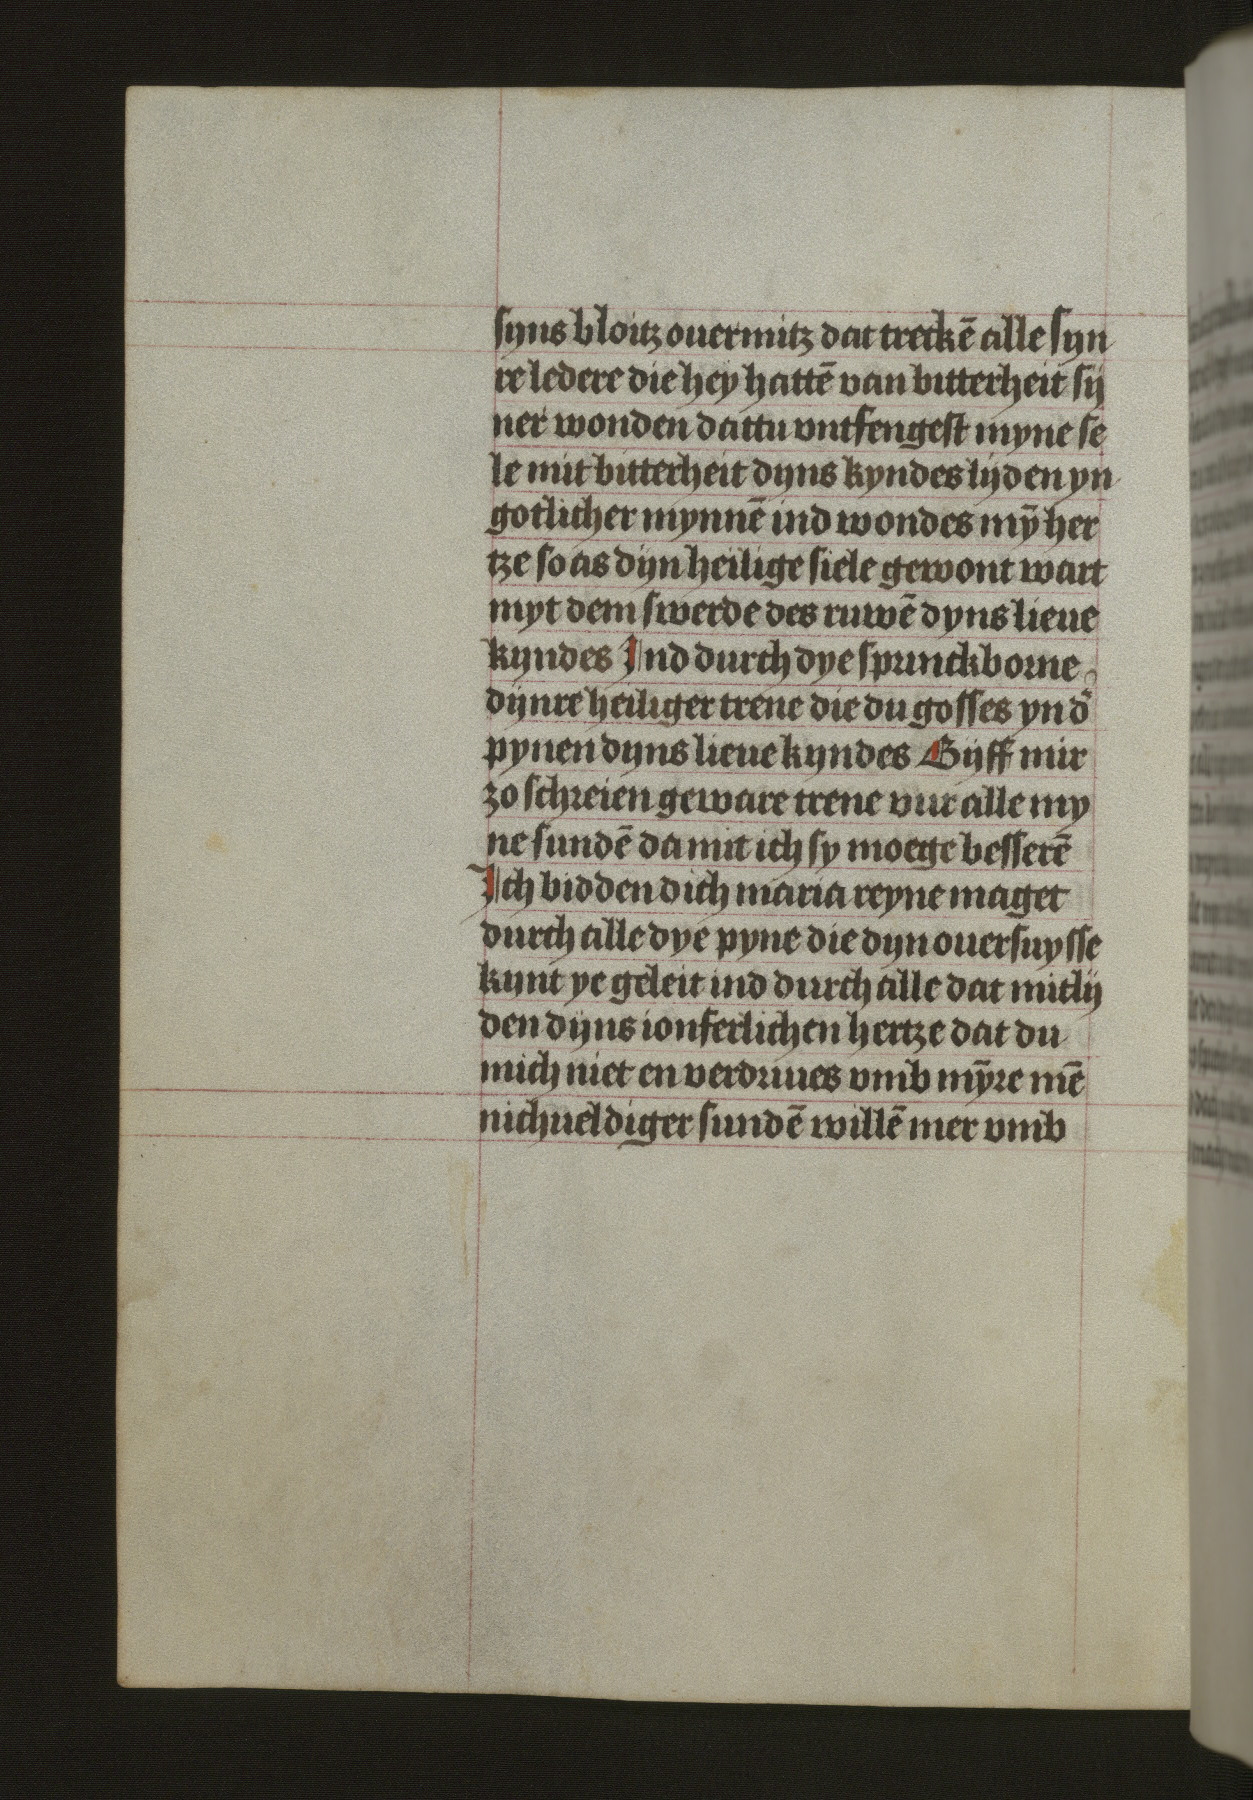 syns bloitz ouermitz dat treckē alle syn
re ledere die hey hattē van bitterheit sij
ner wonden dattu vntfengest myne se
le mit bitterheit dyns kyndes lijden yn
gotlicher mynnē ind wondes mȳ her
tze so as dijn heilige siele gewont wart
myt dem swerde des ruwē dyns lieue
kyndes Ind durch dye sprinckborne
dijnre heiliger trene die du gosses yn d᷑
pynen dyns lieue kyndes Gijff mir
zo schreien geware trene vur alle my
ne sundē da mit ich sy moege besserē
Ich bidden dich maria reyne maget
durch alle dye pyne die dyn ouersuysse
kynt ye geleit ind durch alle dat mitlij
den dyns ionferlichen hertze dat du
mich niet en verdriues vmb mȳre mē
nichueldiger sundē willē mer vmb